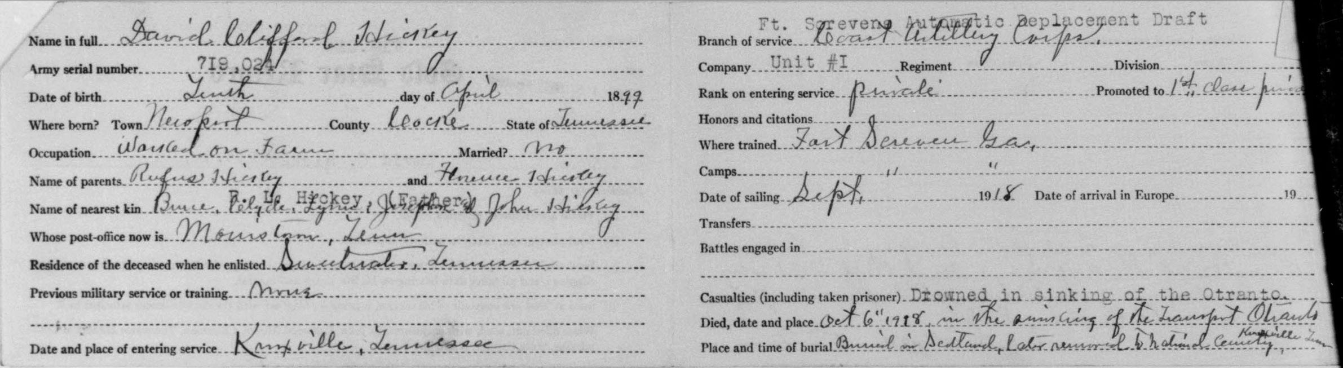 Name in full David Clifford Hickey
Army serial number 719,024
Date of birth Tenth day of April 1899
Where born? Town Newport County Cocke State of Tennessee
Occupation Worked on Farm Married? No
Name of parents Rufus Hickey and Florence Hickey
R. L. Hickey (Father)
Name of nearest kin Bruce, Clyde, Josephine & John Hickey
Whose post-office now is Morristown, Tenn
Residence of the deceased when he enlisted Sweetwater, Tennessee
Previous military service or training None
Date and place of entering service Knoxville, Tennessee
Ft. Screvens Automatic Replacement Draft
Branch of service Coast Artillery Corps.
Company Unit #I Regiment Division
Rank on entering service private Promoted to 1st, class
Honors and citations
Where trained Fort Screven Ga,
Camps " "
Date of sailing Sept, 1918 Date of arrival in Europe 19
Transfers
Battles engaged in
Casualties (including taken prisoner) Drowned in sinking of the Otranto.
Died, date and place Oct 6" 1918, in the sinking of the Transport Otranto
Place and time of burial Buried in Scotland, later removed to National Cemetery, Knoxville Tenn